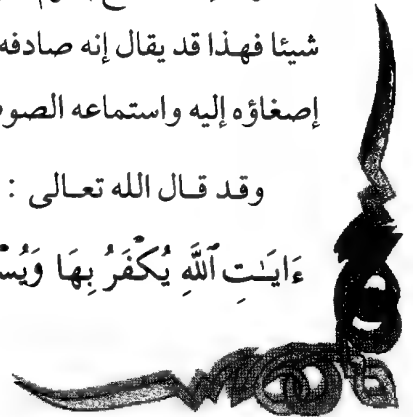 شيئا فهذا قد يقال إنه صادفه
إصغاؤه إليه واستماعه
وقد قال الله تعالى :
ءَايَـٰتِ ٱللَّهِ يُكْفَرُ بِهَا